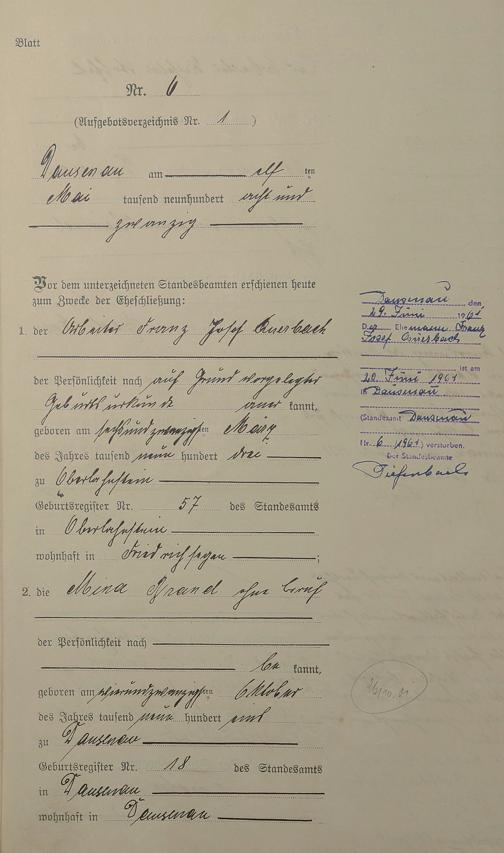 Blatt
Nr. 6
(Aufgebotsverzeichnis Nr. 1 )
Dausenau am elf ten
Mai tausend neunhundert acht und
zwanzig
Vor dem unterzeichneten Standesbeamten erschienen heute
zum Zwecke der Eheschließung:
1. der Arbeiter Franz Josef Auerbach
der Persönlichkeit nach auf Grund vorgelegter
Geburtsurkunde aner kannt,
geboren am sechsundzwanzigsten März
des Jahres tausend neun hundert drei
zu Oberlahnstein
Geburtsregister Nr. 57 des Standesamts
in Oberlahnstein
wohnhaft in Friedrichssegen ;
2. die Mina Brand ohne Beruf
der Persönlichkeit nach
be kannt,
geboren am vierundzwanzigsten Oktober
des Jahres tausend neun hundert eins
zu Dausenau
Geburtsregister Nr. 18 des Standesamts
in Dausenau
wohnhaft in Dausenau
Dausenau den
24. Juni 1961
Der Ehemann Franz
Josef Auerbach
ist am
20. Juni 1961
in Dausenau
(Standesamt Dausenau
Nr. 6 /1961) verstorben.
Der Standesbeamte